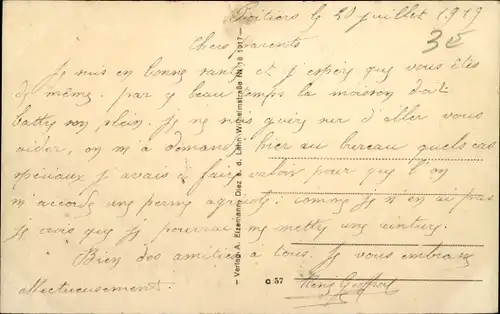 Poitiers le 20 juillet 1919
Chers parents
Je suis en bonne santé et j'espère que vous êtes
de même. par ce beau temps la moison doit
battre son plein. Je ne suis guère sur d'aller vous
aider, on m'a demandé hier au bureau quels cas
spéciaux j'avais à faire valoir pour que l'on
m'accorde une perme agricole: comme je n'en ai pas
je crois que je pourrai me mettre une ceinture.
Bien des amitiés à tous. Je vous embrasse
affectueusement.
— Verlag A. Eizemann, Diez a. d. Lahn, Wilhelmstraße № 18 1917 —
C 57